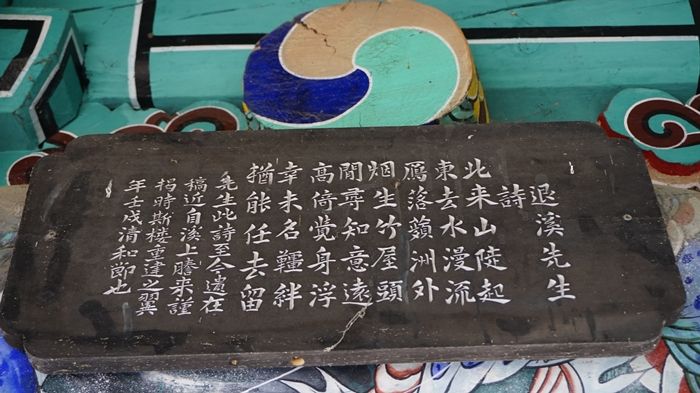 退溪先生
詩
北来山陡起
東去水漫流
鴈落蘋洲外
烟生竹屋頭
閒尋知意遠
高倚覚身浮
幸未名韁絆
猶能任去留
先生此詩至今遺在
稿近自溪上謄来謹
揭時斯楼重建之翼
年壬戌清和節也